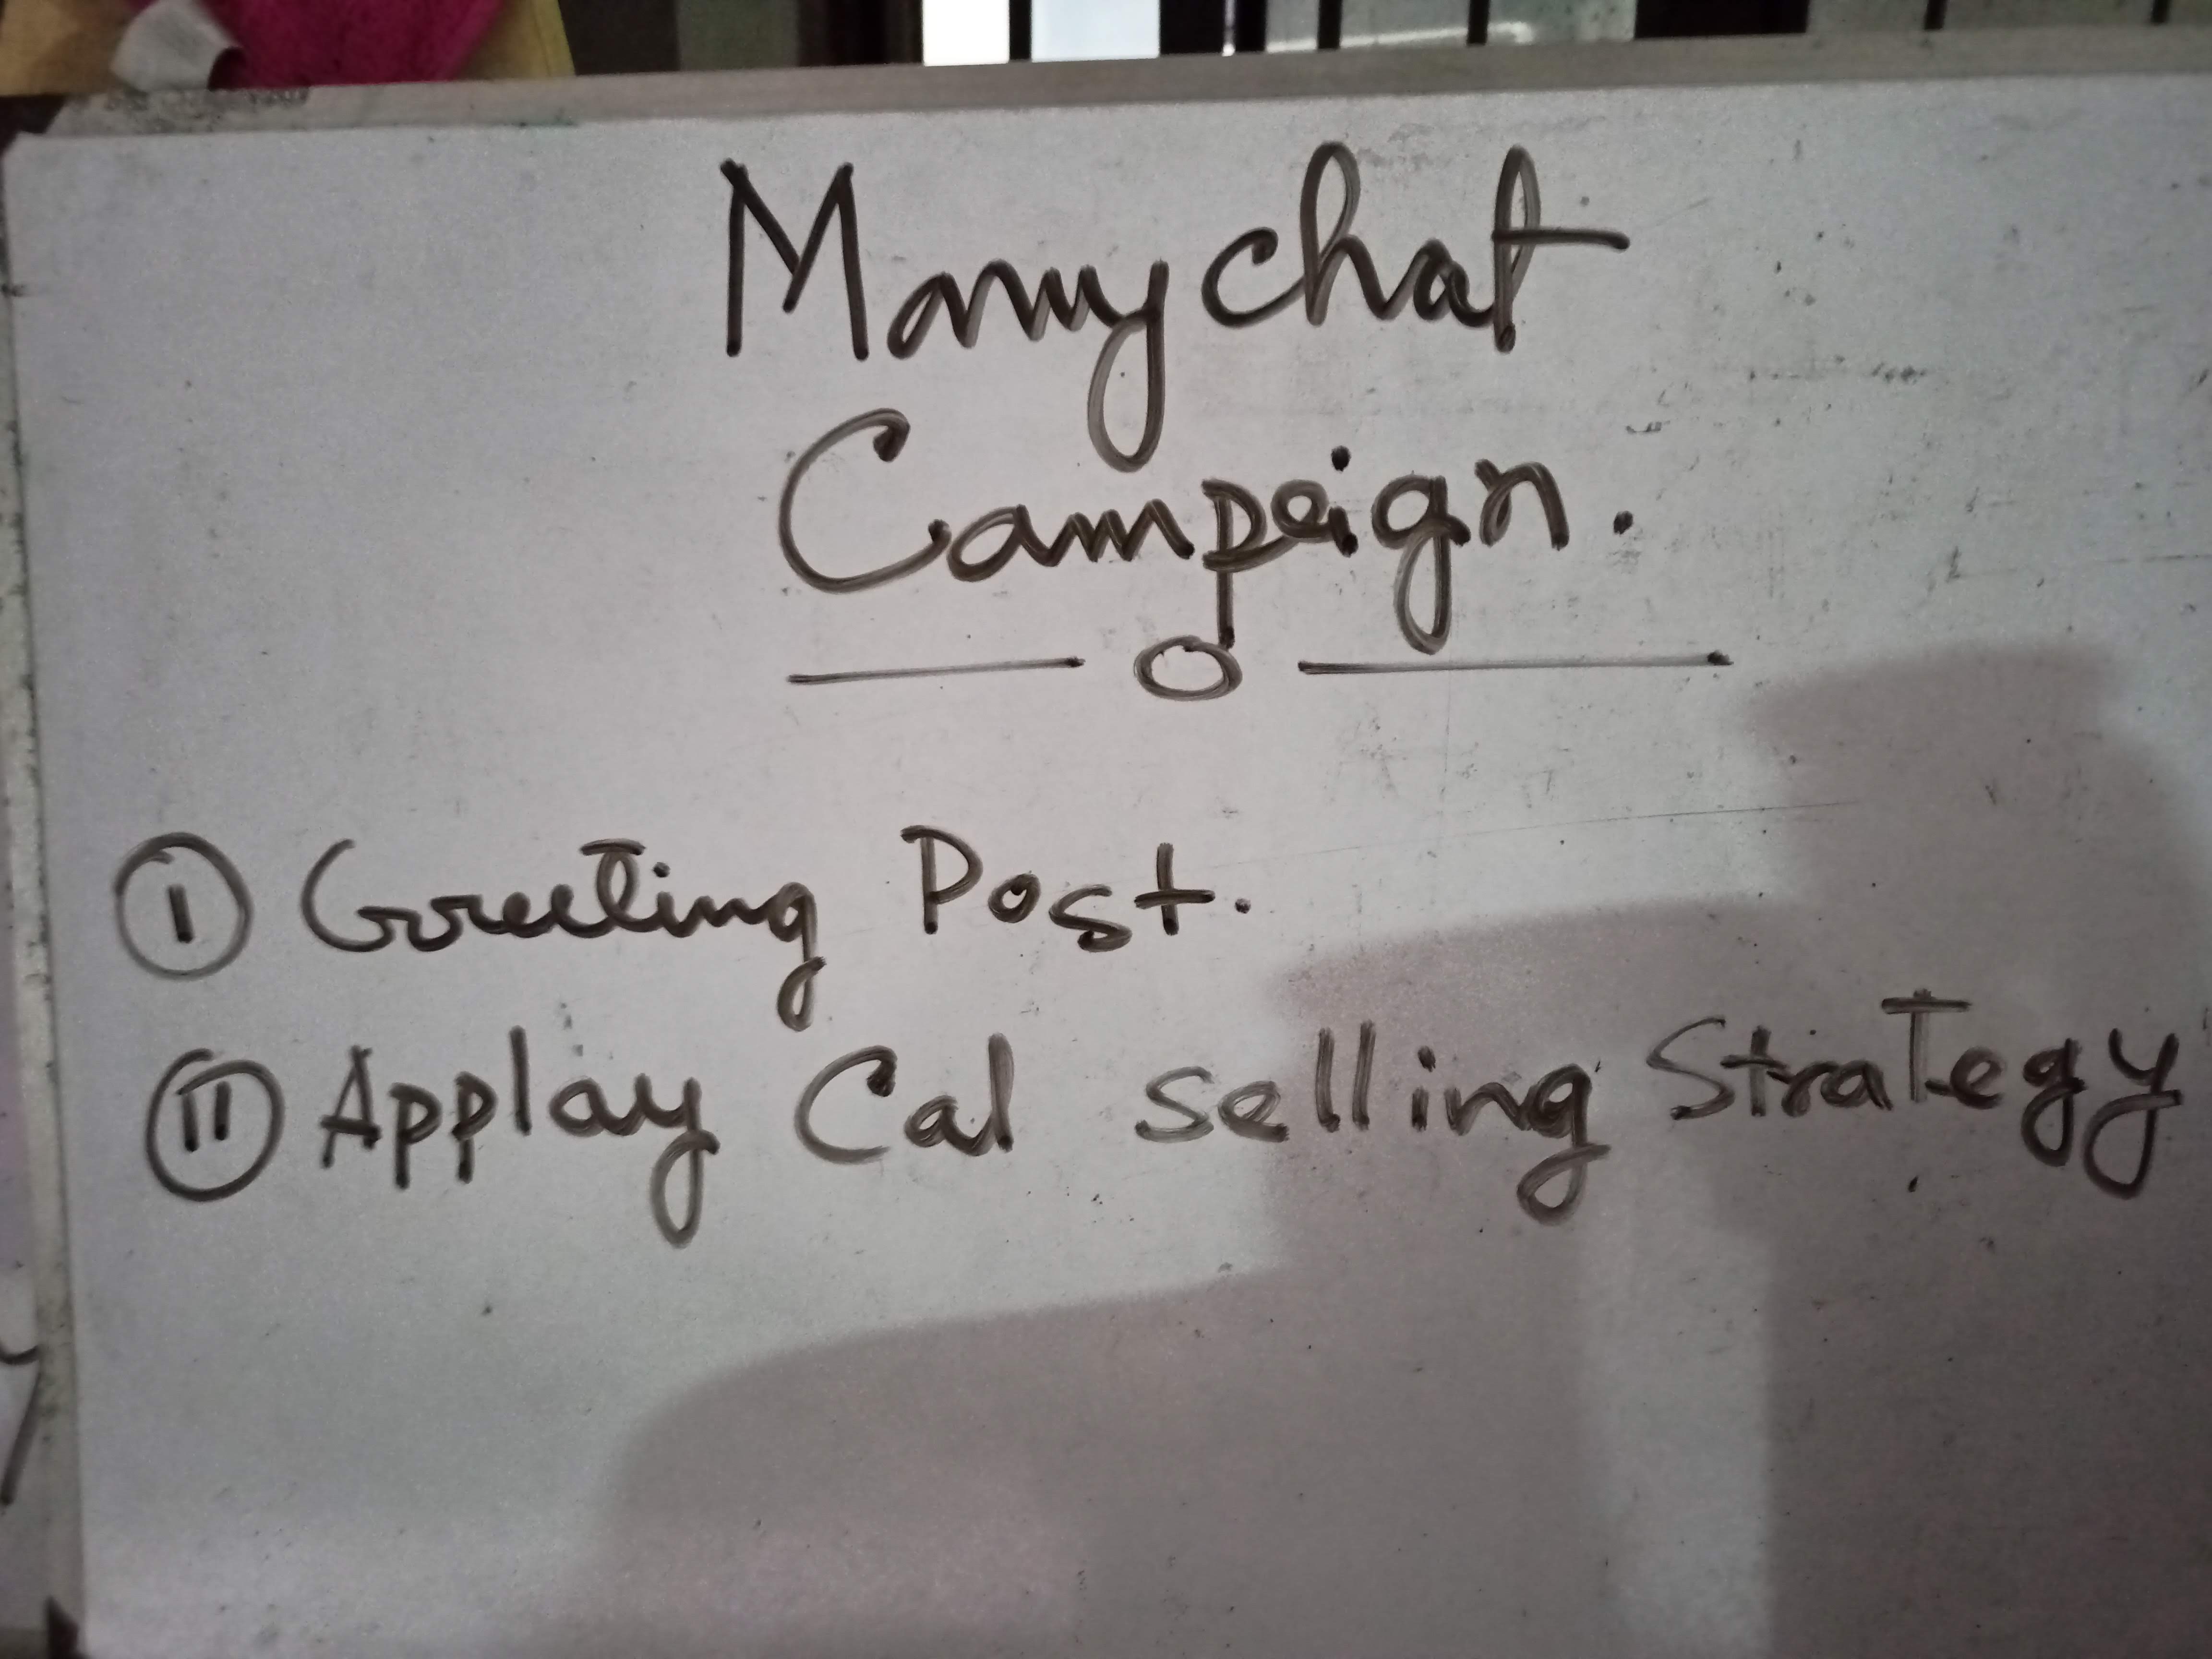 Manychat
Campaign.
① Greeting Post.
⑪ Applay Cal selling Strategy